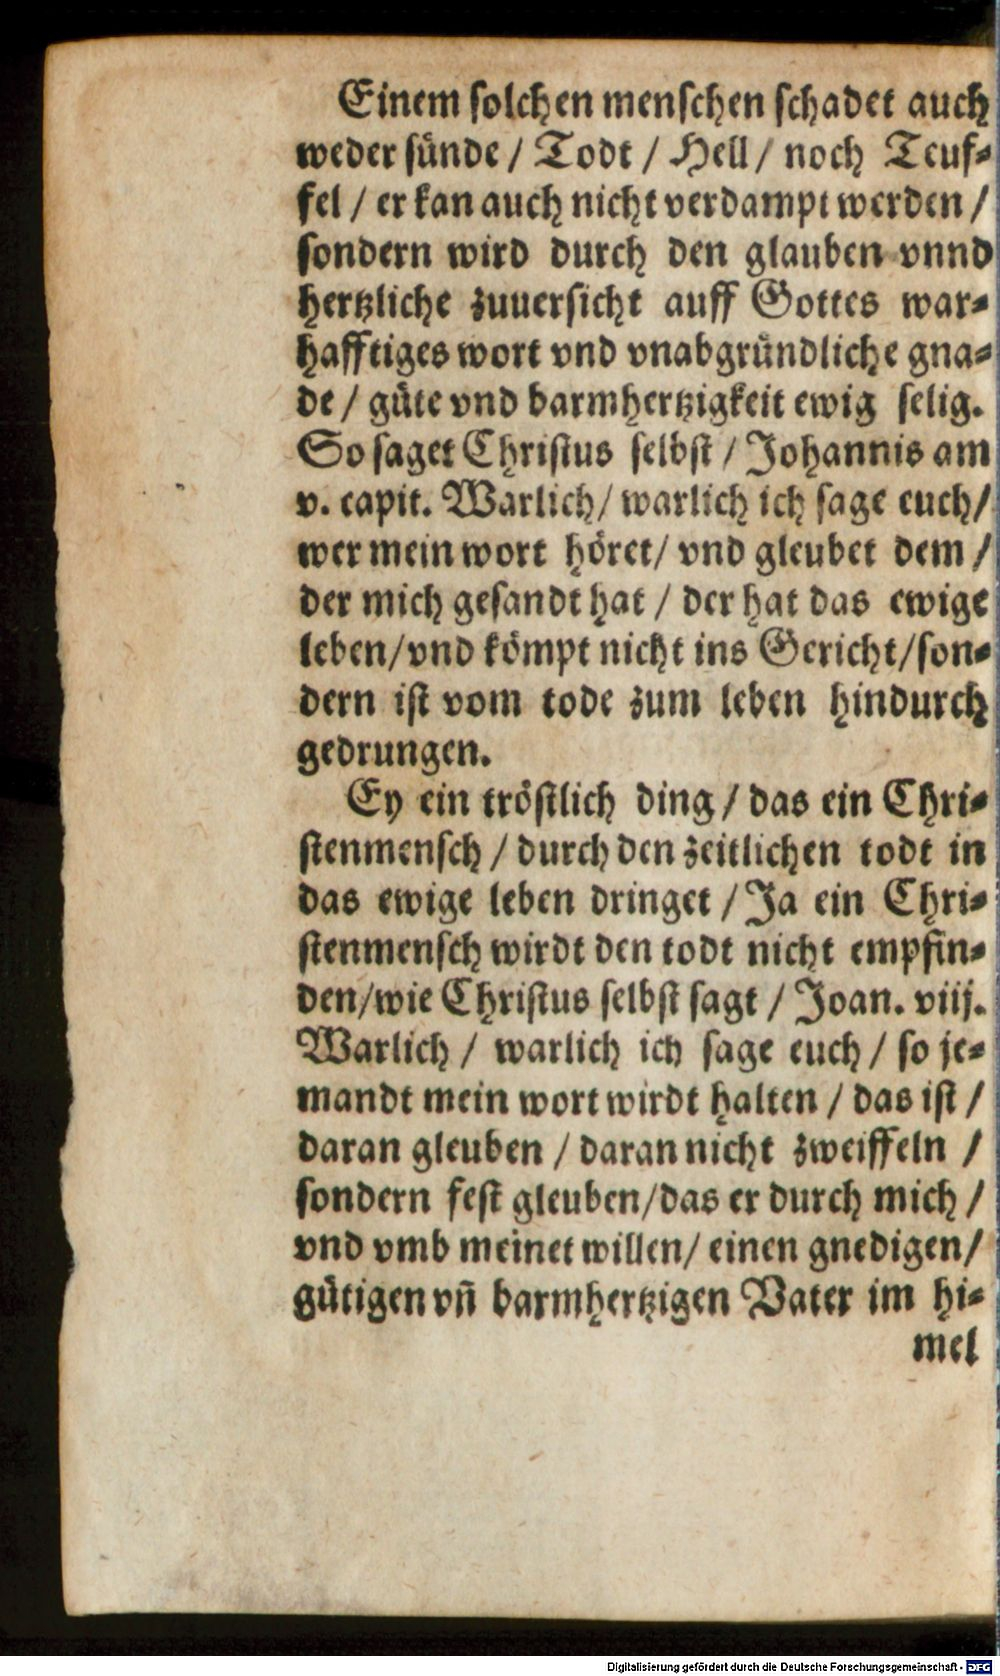 Einem solchen menschen schadet auch
weder sünde / Todt / Hell / noch Teuf⸗
fel / er kan auch nicht verdampt werden /
sondern wird durch den glauben vnnd
hertzliche zuuersicht auff Gottes war⸗
hafftiges wort vnd vnabgründliche gna⸗
de / güte vnd barmhertzigkeit ewig selig.
So saget Christus selbst / Johannis am
v. capit. Warlich / warlich ich sage euch /
wer mein wort höret / vnd gleubet dem /
der mich gesandt hat / der hat das ewige
leben / vnd kömpt nicht ins Gericht / son⸗
dern ist vom tode zum leben hindurch
gedrungen.
Ey ein tröstlich ding / das ein Chri⸗
stenmensch / durch den zeitlichen todt in
das ewige leben dringet / Ja ein Chri⸗
stenmensch wirdt den todt nicht empfin⸗
den / wie Christus selbst sagt / Joan. viij.
Warlich / warlich ich sage euch / so je⸗
mandt mein wort wirdt halten / das ist /
daran gleuben / daran nicht zweiffeln /
sondern fest gleuben / das er durch mich /
vnd vmb meinet willen / einen gnedigen /
gütigen vñ barmhertzigen Vater im hi⸗
mel
Digitalisierung gefördert durch die Deutsche Forschungsgemeinschaft - DFG